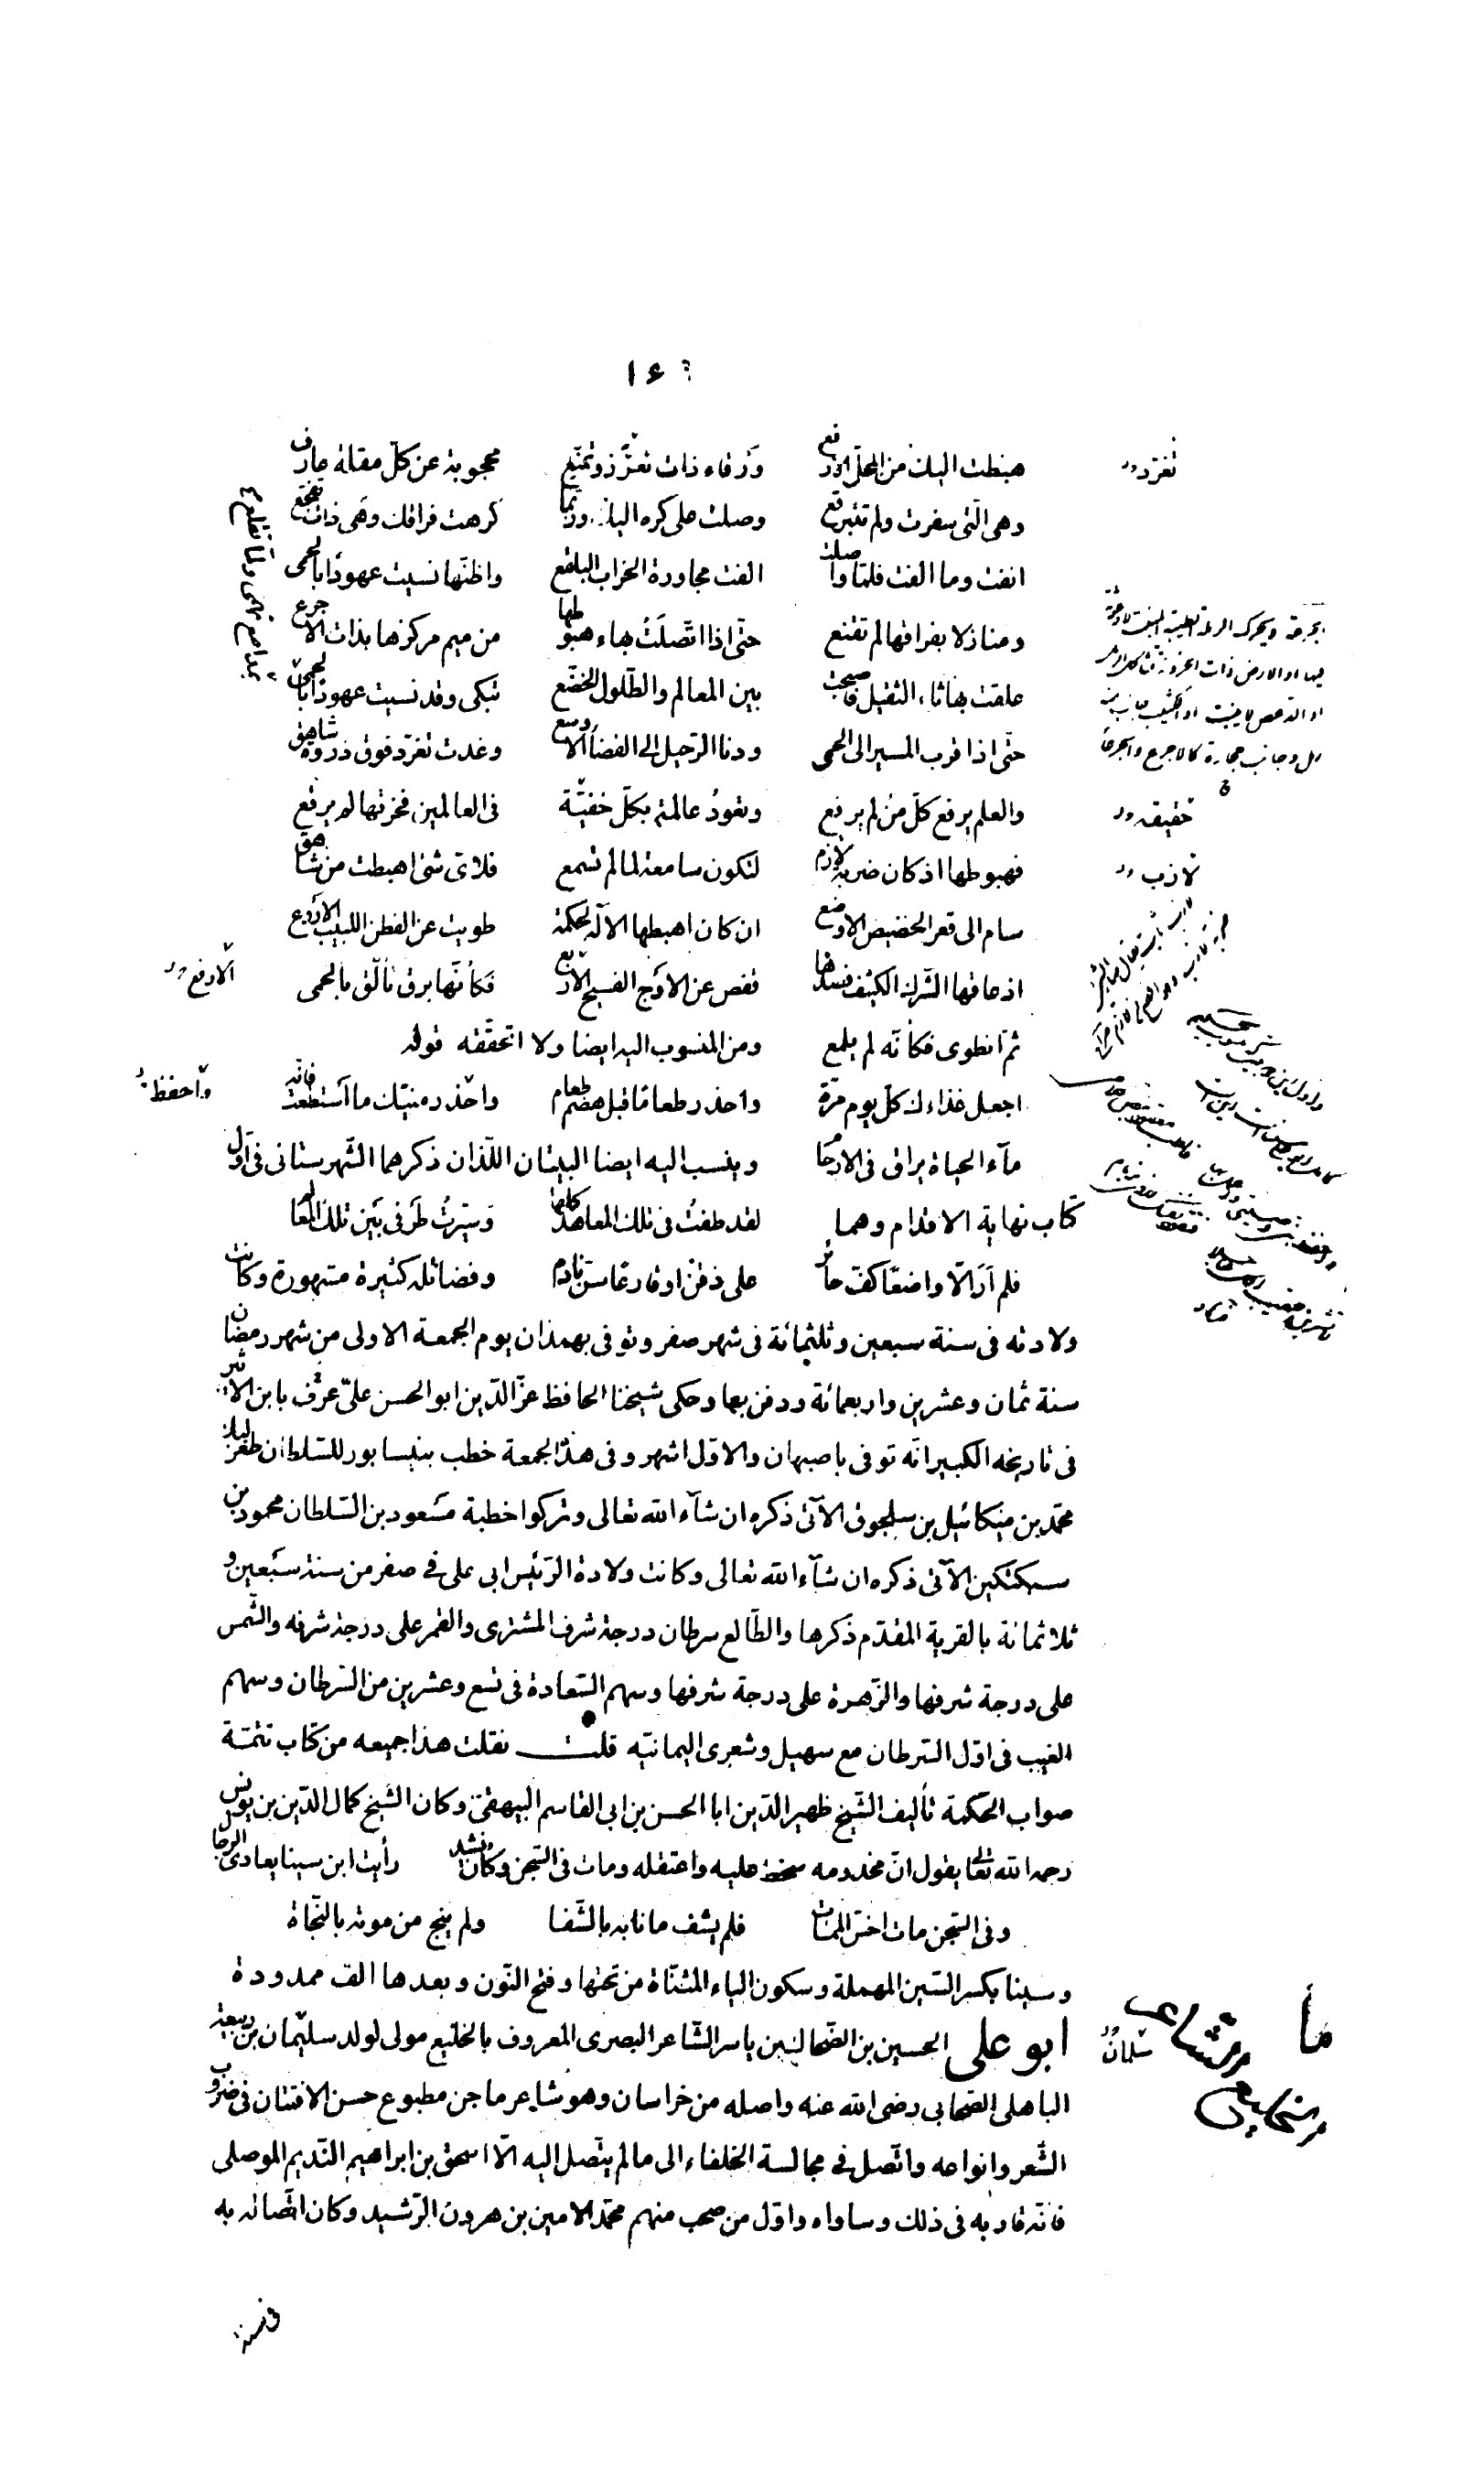 ١٤
هبطت اليك من المحلّ الارفع ورقاء ذات تعزّز وتمنّع محجوبة عن كلّ مقلة عارف
وهى الّتى سفرت ولم تتبرقع وصلت على كره اليك وربّما كرهت فراقك وهى ذات تفجّع
انفت وما الفت فلمّا واصلت الفت مجاورة الخراب البلقع واظنّها نسيت عهودًا بالحمى
ومنازلا بفراقها لم تقنع حتّى اذا اتّصلَتْ بهاء هبوطها من ميم مركزها بذات الاجرع
علقت بها ثاء الثقيل فاصبحت بين المعالم والطّلول الخضّع تبكى وقد نسيت عهودًا بالحمى
حتّى اذا قرب المسير الى الحمى ودنا الرّحيل الى الفضاء الاوسع وغدت تغرّد فوق ذروة شاهق
والعلم يرفع كلّ من لم يرفع وتعودُ عالمة بكلّ خفيّة فى العالمين فخرقها لم يرقع
فهبوطها اذ كان ضربة لازم لتكون سامعة لما لم تسمع فلاىّ شئ اهبطت من شاهق
سام الى قعر الحضيض الاوضع ان كان اهبطها الاله لحكمة طويت عن الفطن اللبيب الاروع
اذ عاقها الشّرك الكثيف فصدّها قفص عن الاوج الفسيح الاربع فكأنّها برق تألّق بالحمى
ثمّ انطوى فكأنّه لم يلمع ومن المنسوب اليه ايضا ولا اتحقّقه قوله
اجعل غذاءك كلّ يوم مرّة واحذر طعامًا قبل هضم طعام واحذر منيّك ما استطعت فانّه
مآء الحياة يراق فى الارحام وينسب اليه ايضا البيتان اللّذان ذكرهما الشّهرستانى فى اوّل
كتاب نهاية الاقدام وهما لقد طفتُ فى تلك المعاهد كلّها وسيّرتُ طرفى بين تلك المعالم
فلم اَرَ الّا واضعًا كفّ حائر على ذقن او قارعًا سنّ نادم وفضائله كثيرة مشهورة وكانت
ولادته فى سنة سبعين وثلثمائة فى شهر صفر وتوفى بهمذان يوم الجمعة الاولى من شهر رمضان
سنة ثمان وعشرين واربعمائة ودفن بها وحكى شيخنا الحافظ عزّ الدّين ابو الحسن علىّ عرف بابن الاثير
فى تاريخه الكبير انّه توفى باصبهان والاوّل اشهر وفى هذه الجمعة خطب بنيسابور للسّلطان طغرلبك
محمّد بن ميكائيل بن سلجوق الآتى ذكره ان شآء الله تعالى وتركوا خطبة مسعود بن السّلطان محمود بن
سبكتكين الآتى ذكره ان شآء الله تعالى وكانت ولادة الرّئيس ابى على فى صفر من سنة سبعين و
ثلاثمائة بالقرية المقدّم ذكرها والطّالع سرطان درجة شرف المشترى والقمر على درجة شرفه والشّمس
على درجة شرفها والزّهرة على درجة شرفها وسهم السّعادة فى تسع وعشرين من السّرطان وسهم
الغيب فى اوّل السّرطان مع سهيل وشعرى اليمانيّه قلت نقلت هذا جميعه من كتاب تتمّة
صواب الحكمة تأليف الشّيخ ظهير الدّين ابا الحسن بن ابى القاسم البيهقىّ وكان الشّيخ كمال الدّين بن يونس
رحمه الله تعالى يقول انّ مخدومه سخط عليه واعتقله ومات فى السّجن وكان ينشد رأيت ابن سينا يعادى الرجال
وفى السّجن مات اخسّ الممات فلم يشف ما نابه بالشّفا ولم ينج من موته بالنّجاة
وسينا بكسر السّين المهملة وسكون الياء المثنّاة من تحتها وفتح النّون وبعدها الف ممدودة
ابو على الحسين بن الضّحاك بن ياسر الشّاعر البصرى المعروف بالخليع مولى لولد سليمان بن ربيعة
الباهلى الصّحابى رضى الله عنه واصله من خراسان وهو شاعر ماجن مطبوع حسن الافتنان فى ضروب
الشّعر وانواعه واتّصل فى مجالسة الخلفاء الى ما لم يتّصل اليه الّا اسحق بن ابراهيم النّديم الموصلى
فانّه قاربه فى ذلك وساواه واوّل من صحب منهم محمّد الامين بن هرون الرّشيد وكان اتّصاله به
تغرّد
حقيقه
لازب
الارفع
واحفظ
سلمان